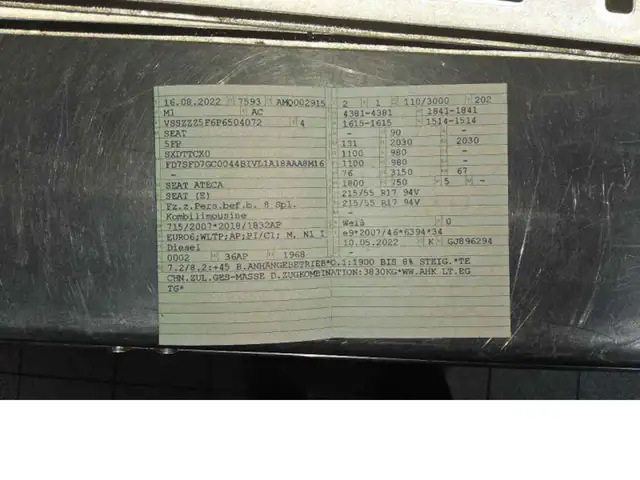 16.08.2022 7593 AMQ002915
M1 AC
VSSZZZ5F6P6504072 4
SEAT
5FP
SXDTTCX0
FD7SFD7GC0044BIVL1A18AAA8M16
-
SEAT ATECA
SEAT (E)
Fz.z.Pers.bef.b. 8 Spl.
Kombilimousine
715/2007*2018/1832AP
EURO6;WLTP;AP;PI/CI; M, N1 I
Diesel
0002 36AP 1968
7.2/8.2:+45 B.ANHÄNGEBETRIEB*O.1:1900 BIS 8% STEIG.*TE
CHN.ZUL.GES-MASSE D.ZUGKOMBINATION:3830KG*WW.AHK LT.EG
TG*
2 1 110/3000 202
4381-4381 1841-1841
1615-1615 1514-1514
- 90 -
131 2030 2030
1100 980 -
1100 980 -
76 3150 67
1800 750 5 -
215/55 R17 94V
215/55 R17 94V
-
Weiß 0
e9*2007/46*6394*34
10.05.2022 K GJ896294
-